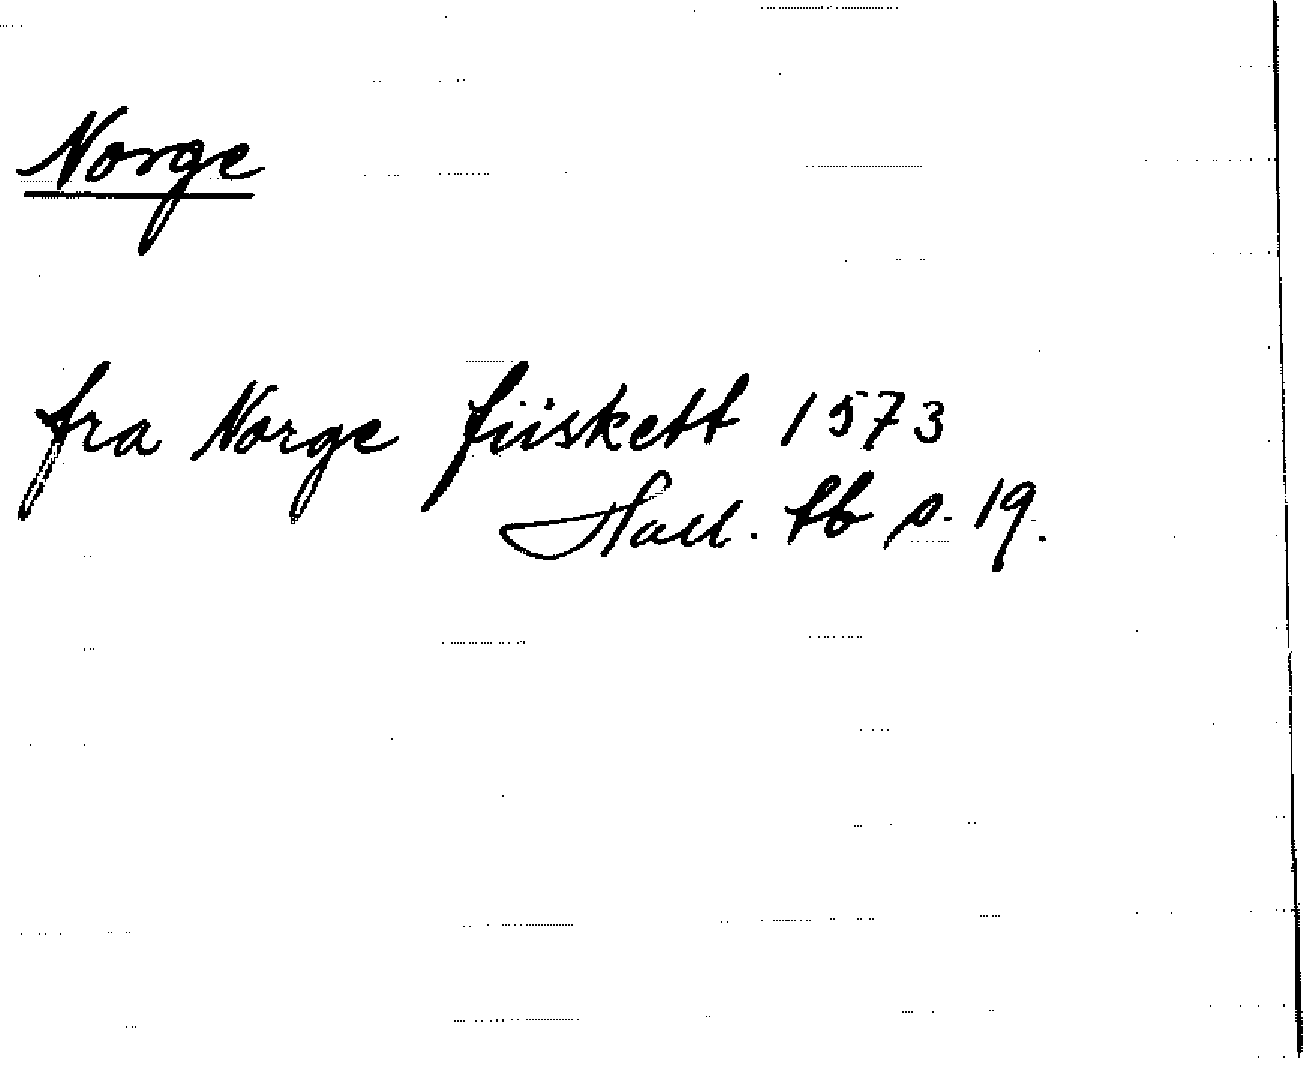 Norge
fra Norge fiiskett 1573
Hall. tb s. 19.